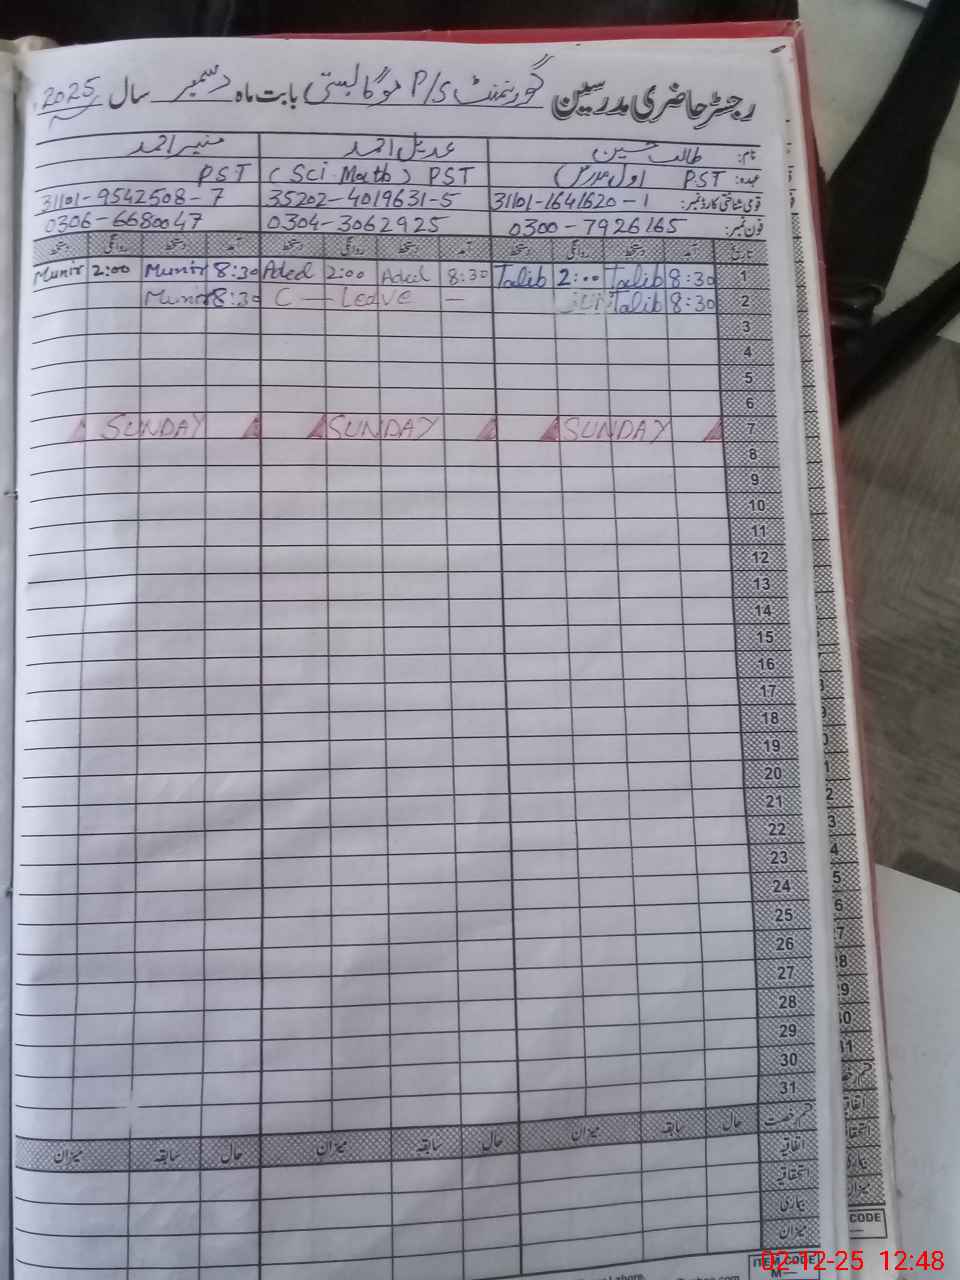 رجسٹر حاضری مدرسین گورنمنٹ P/S موگا بستی بابت ماہ دسمبر سال 2025
نام: طالب حسین عدیل احمد منیر احمد
عہدہ: PST اول مدرس PST (Sci Math) PST
قومی شناختی کارڈ نمبر: 31101-1641620-1 35202-4019631-5 31101-9542508-7
فون نمبر: 0300-7926165 0304-3062925 0306-6680047
تاریخ آمد دستخط روانگی دستخط آمد دستخط روانگی دستخط آمد دستخط روانگی دستخط
1 8:30 Talib 2:00 Talib 8:30 Adeel 2:00 Adeel 8:30 Munir 2:00 Munir
2 8:30 Talib C — Leave — 8:30 Munir
3
4
5
6
7 SUNDAY SUNDAY SUNDAY
8
9
10
11
12
13
14
15
16
17
18
19
20
21
22
23
24
25
26
27
28
29
30
31
قسم رخصت حال سابقہ میزان حال سابقہ میزان حال سابقہ میزان
اتفاقیہ
استحقاقیہ
بیماری
میزان
ITEM CODE
M—
CODE
02-12-25 12:48